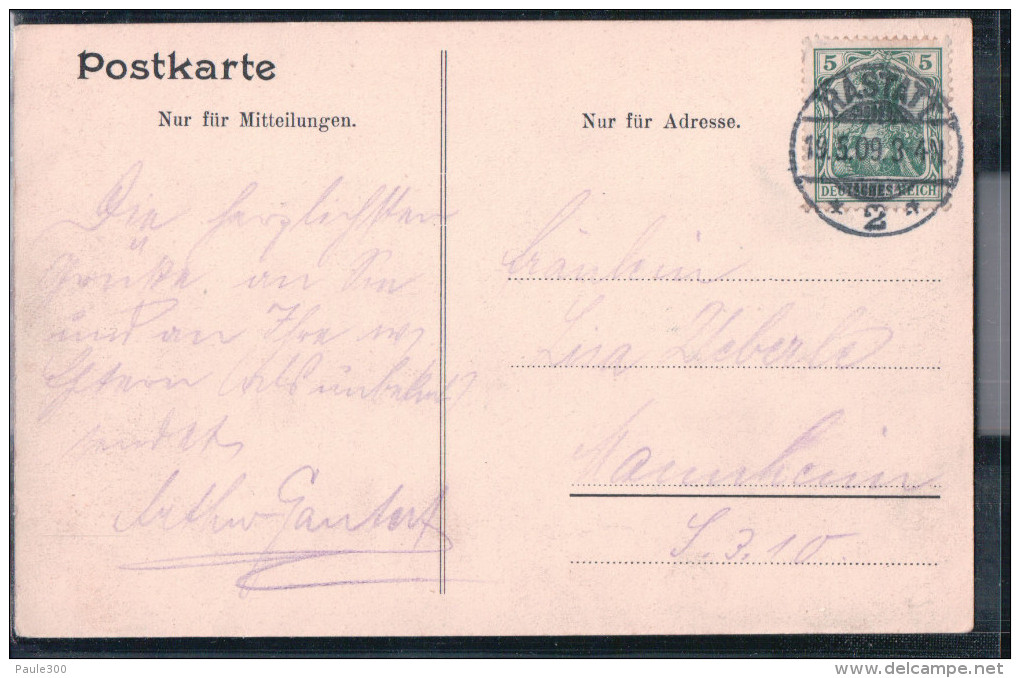 Postkarte
Nur für Mitteilungen.
Nur für Adresse.
5 5
RASTATT
19.5.09.3-4N
DEUTSCHES REICH
* 2 *
Die herzlichsten
Grüße an Sie
und an Ihre w
Eltern (als unbekannt)
sendet
Arthur Gantert
Fräulein
Lisa Ueberle
Mannheim
S.3.10
Paule300
delcampe.net